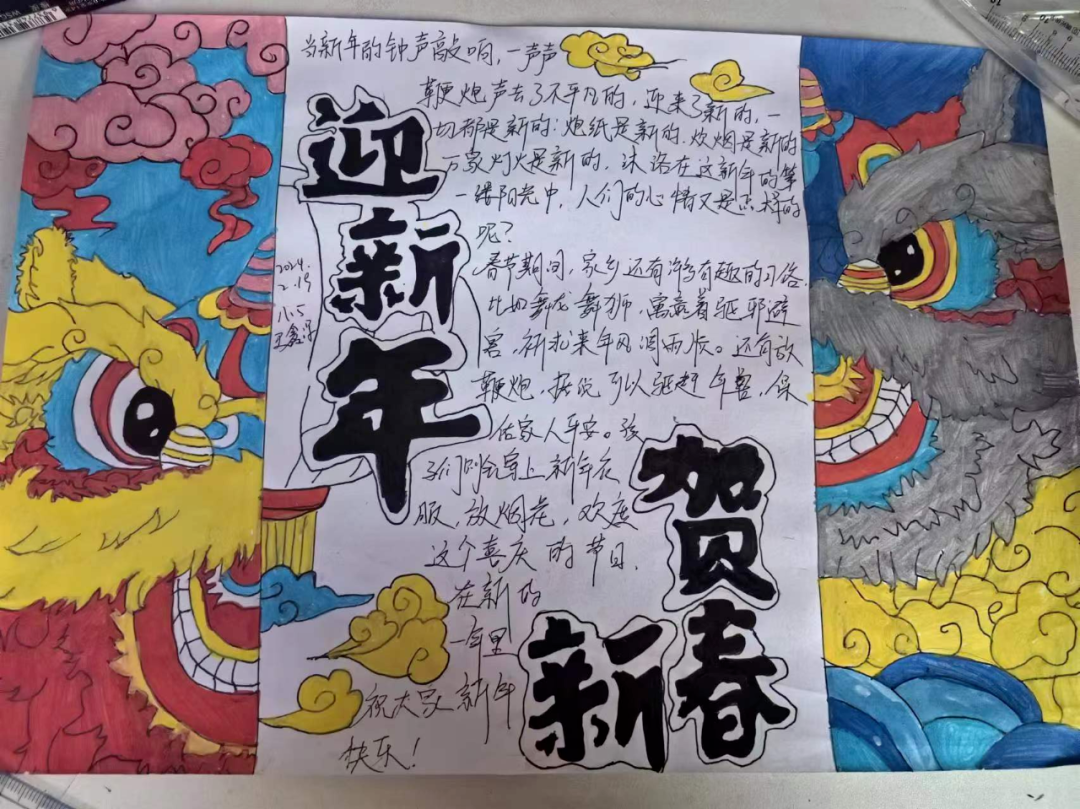 当新年的钟声敲响，一声声
鞭炮声去了不平凡的，迎来了新的，一
切都是新的：炮纸是新的，炊烟是新的
万家灯火是新的，沐浴在这新年的第
一缕阳光中，人们的心情又是怎样的
呢？
春节期间，家乡还有许多有趣的习俗．
比如舞龙舞狮，寓意着驱邪避
害，祈求来年风调雨顺。还有放
鞭炮，据说可以驱赶年兽，保
佑家人平安。孩
子们则会穿上新年衣
服，放烟花，欢度
这个喜庆的节日．
在新的
一年里
祝大家新年
快乐！
迎
新
年
2024.
2.19
八.5
王鑫
贺
新春